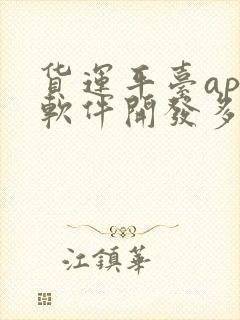 货運平臺ap
軟件開發多
江鎮華